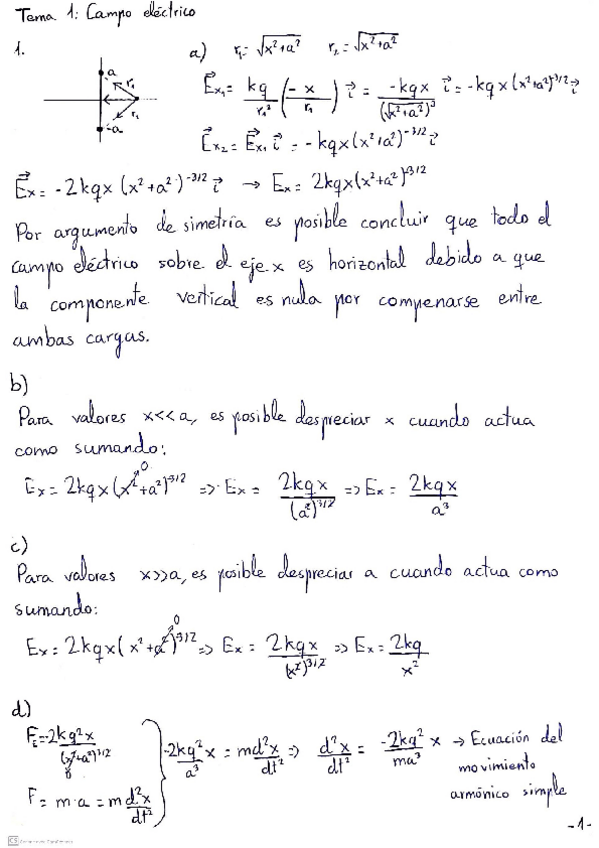 Tema 1: Campo eléctrico
1.
a) r₁=√(x²+a²) r₂=√(x²+a²)
a
r₁
r₂
-a
E⃗x₁= kq/r₁² (-x/r₁) i⃗ = -kqx/(√(x²+a²))³ i⃗ = -kqx(x²+a²)^-3/2 i⃗
E⃗x₂= E⃗x₁ i⃗ = -kqx(x²+a²)^-3/2 i⃗
E⃗x= -2kqx (x²+a²)^-3/2 i⃗ → Ex= 2kqx(x²+a²)^-3/2
Por argumento de simetría es posible concluir que todo el
campo eléctrico sobre el eje x es horizontal debido a que
la componente vertical es nula por compenarse entre
ambas cargas.
b)
Para valores x<<a, es posible despreciar x cuando actua
como sumando:
Ex= 2kqx(x²+a²)^3/2 => Ex= 2kqx/(a²)^3/2 => Ex= 2kqx/a³
0
c)
Para valores x>>a, es posible despreciar a cuando actua como
sumando:
Ex= 2kqx(x²+a²)^3/2 => Ex= 2kqx/(x²)^3/2 => Ex= 2kq/x²
0
d)
FE= -2kq²x/(x²+a²)^3/2
0
F= m·a = m d²x/dt²
-2kq²/a³ x = m d²x/dt² => d²x/dt² = -2kq²/ma³ x → Ecuación del
movimiento
armónico simple
-1-
CS